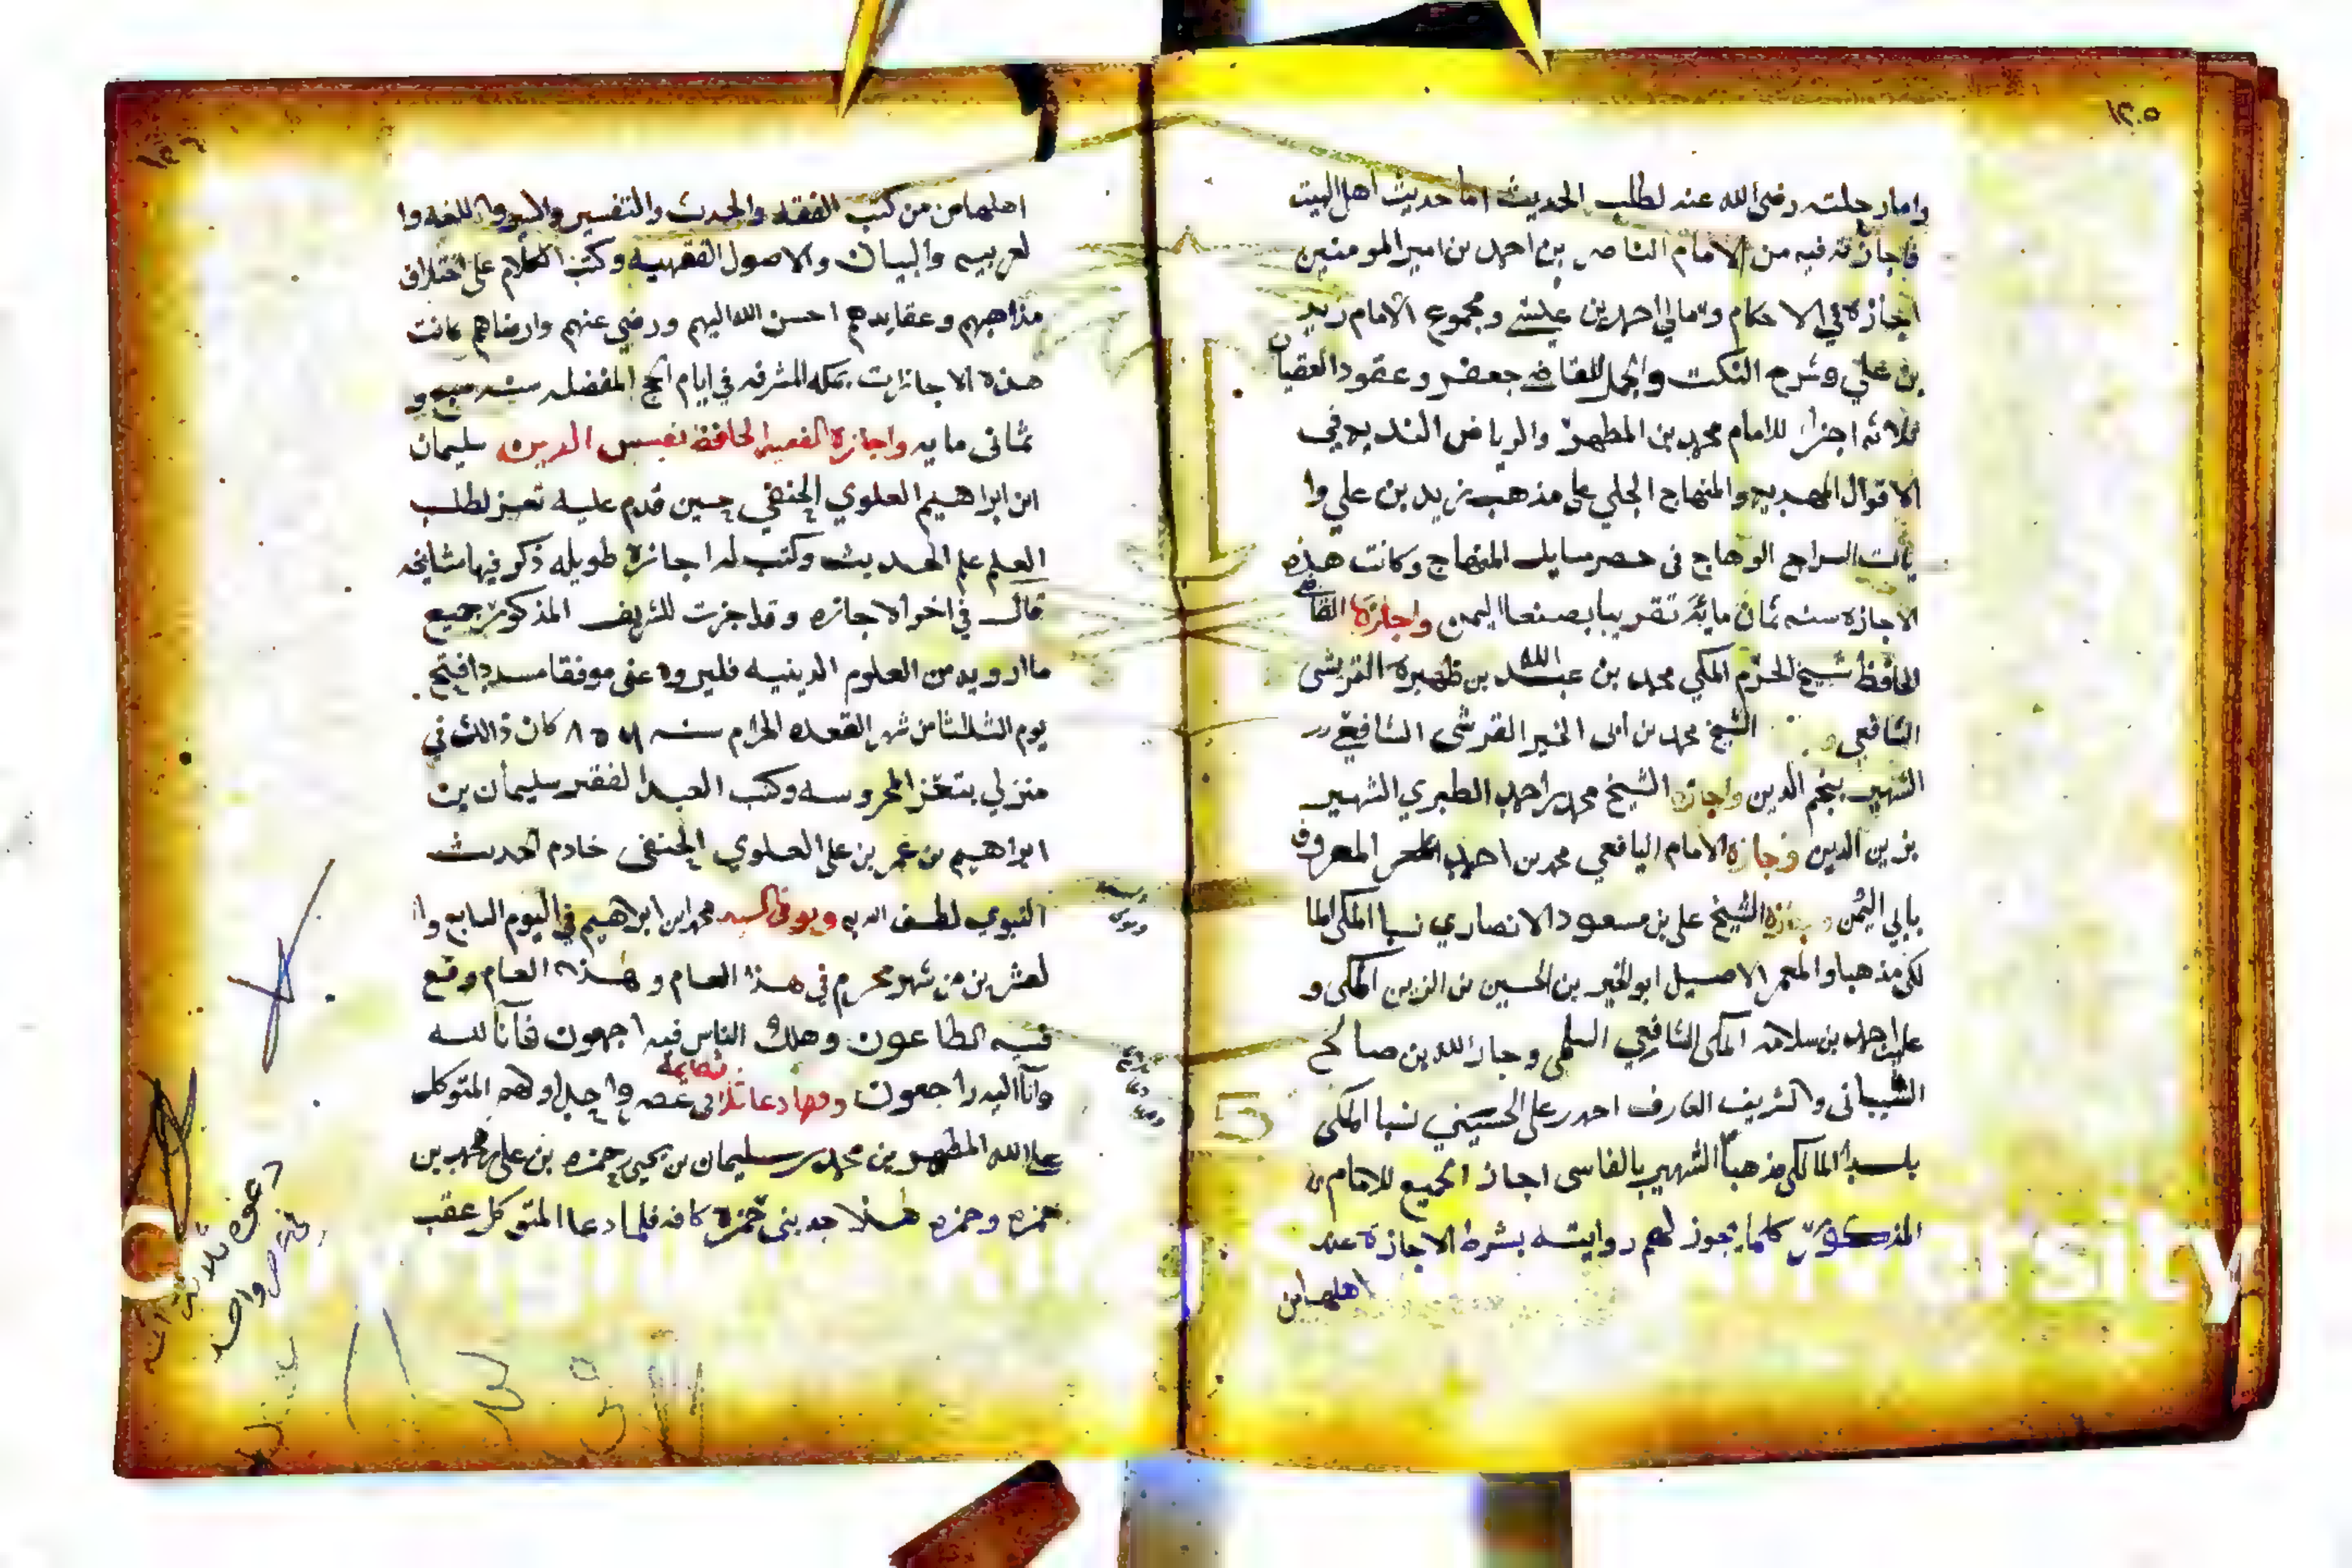 ١٢٠٥
واما رحلته رضي الله عنه لطلب الحديث اما حديث اهل البيت
فاجازته فيه من الامام الناصر بن احمد بن امير المومنين
اجازة في الاحكام وامالي احمد بن عيسى ومجموع الامام زيد
بن علي وشرح النكت والجمل للقاضي جعفر وعقود العقيان
ثلاثه اجزا للامام محمد بن المطهر والرياض النديه في
الاقوال المهديه والمنهاج الجلي على مذهب زيد بن علي وا
السراج الوهاج في حصر مسايل المنهاج وكانت هذه
الاجازه سنه ثمان مائة تقريبا بصنعا اليمن واجازة القاضي
الحافظ شيخ الحرم المكي محمد بن عبد الله بن ظهيرة القرشي
الشافعي و الشيخ محمد بن ابي الخير القرشي الشافعي
الشهير بنجم الدين واجازه الشيخ محمد بن احمد الطبري الشهير
بزين الدين وجازة الامام اليافعي محمد بن احمد المعروف
بابي اليمن الشيخ علي بن مسعود الانصاري نسبا المكي الما
لكي مذهبا والمعمر الاصيل ابو الخير بن الحسين بن الزين المكي و
علي احمد بن سلامه المكي الشافعي السلمي وجار الله بن صالح
الشيباني والشريف العارف احمد بن علي الحسيني نسبا المكي
بلدا المالكي مذهبا الشهير بالفاسي اجاز الجميع للامام
المذكور كلما يجوز لهم روايته بشرط الاجازة عند
اهلها من
١٢٠٦
اهلها من من كتب الفقه والحديث والتفسير والسير واللغه وا
لعربيه والبيان والاصول الفقهيه وكتب الكلام على اختلاف
مذاهبهم وعقايدهم احسن الله اليهم ورضي عنهم وارضاهم كانت
هذه الاجازات بمكه المشرفه في ايام الحج المفضله سنه سبع و
ثماني مايه واجازة الفقيه الحافظ نفيس الدين سليمان
ابن ابراهيم العلوي الحنفي حين قدم عليه تعز لطلب
العلم علم الحديث وكتب له اجازة طويله ذكر فيها مشايخه
قال في اخر الاجازه وقد اجزت للشريف المذكور جميع
ما ارويه من العلوم الدينيه فليروه عني موفقا مسددا
يوم الثلثا من شهر القعده الحرام سنه كان ذالك في
منزلي بتعز المحروسه وكتب العبد الفقير سليمان بن
ابراهيم بن عمر بن علي العلوي الحنفي خادم الحديث
النبوي لطف الله به وتوفي السيد محمد ابن ابراهيم في اليوم السابع وا
لعشرين من شهر محرم في هذا العام وهذه العام وقع
فيه الطاعون وهلك الناس فيه اجمعون فانا لله
وانا اليه راجعون وفيها دعا ثلاثه ائمه في عصر واحد اولهم المتوكل
على الله المطهر بن محمد بن سليمان بن يحيى بن حمزه بن علي بن محمد بن
حمزه وحمزه هذا جد بني حمزة كافه فلما دعا المتوكل عقب
دعوه ثلاثه ائمه
في عصر واحد